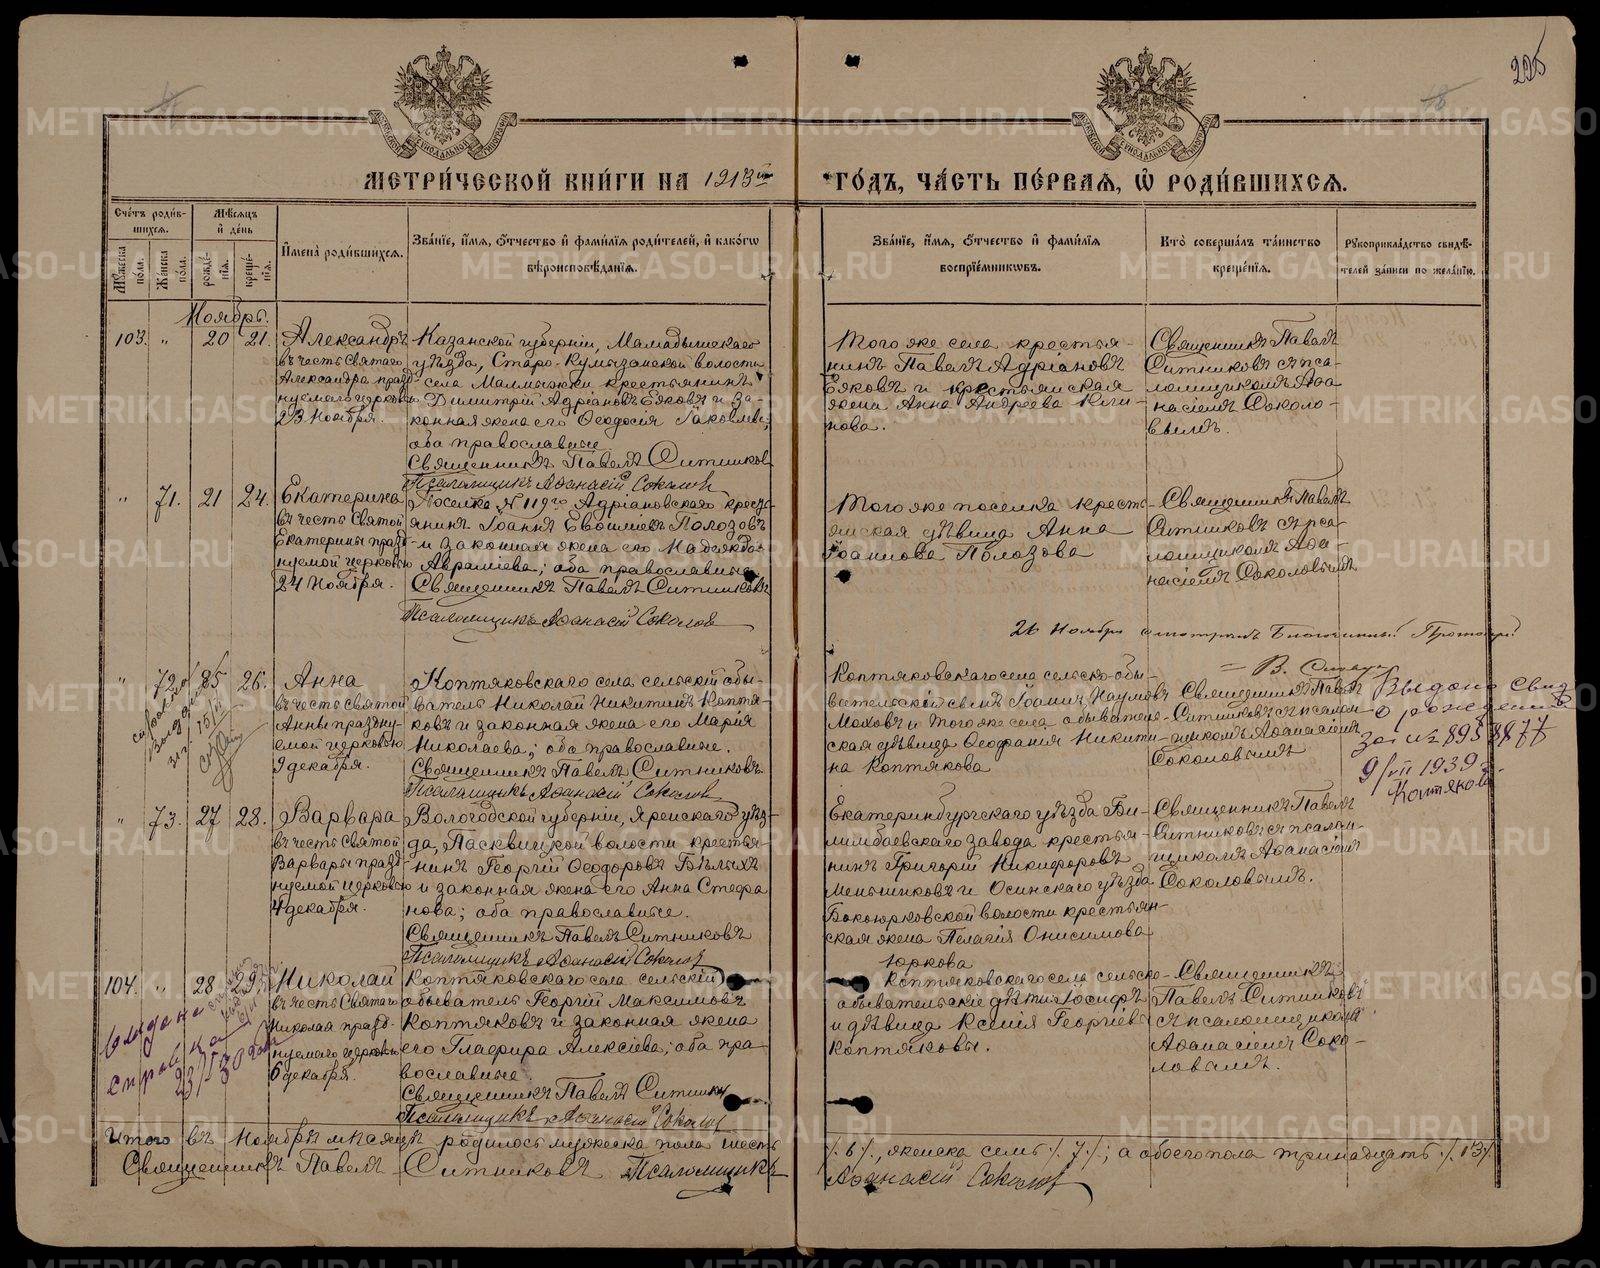 225
МЕТРИ́ЧЕСКОЙ КНИ́ГИ НА 1913й ГО́ДЪ, ЧА́СТЬ ПЕ́РВАЯ, Ѡ РОДИ́ВШИХСЯ.
Сче́тъ роди́вшихся.
Мꙋ́жеска по́ла.
Же́нска по́ла.
Мѣ́сяцъ и҆ де́нь
рожде́нїя.
креще́нїя.
И҆мена̀ роди́вшихся.
Зва́нїе, и҆́мя, ѻ҆́тчество и҆ фами́лїя роди́телей, и҆ како́гѡ
вѣроисповѣ́данїя.
Зва́нїе, и҆́мя, ѻ҆́тчество и҆ фами́лїя
воспрїе́мникѡвъ.
Кто̀ соверша́лъ та́инство
креще́нїя.
Рꙋкоприкла́дство свидѣ́-
телей за́писи по жела́нїю.
Ноябрь.
103. " 20 21.
Александръ
въ честь Святаго
Александра празд-
нуемаго церковью
23 Ноября.
Казанской губерніи, Мамадышскаго
уѣзда, Старо-Кумызанской волости
села Малмыжки крестьянинъ
Димитрій Адріановъ Ековъ и за-
конная жена его Ѳеодосія Іаковлева,
оба православные
Священникъ Павелъ Ситников
Псаломщикъ Аѳанасій Соколов
Того же села крестья-
нинъ Павелъ Адріановъ
Ековъ и крестьянская
жена Анна Андреева
Священникъ Павелъ
Ситниковъ съ пса-
ломщикомъ Аѳа-
насіемъ Соколо-
вымъ.
" 71. 21 24.
Екатерина
въ честь Святой
Екатерины празд-
нуемой церковью
24 Ноября.
Поселка № 119го Адріановскаго кресть-
янинъ Іоаннъ Евѳимевъ Полозовъ
и законная жена его Надежда
Авраміева; оба православные
Священникъ Павелъ Ситниковъ
Псаломщикъ Аѳанасій Соколов
Того же поселка кресть-
янская дѣвица Анна
Іоаннова Полозова
Священникъ Павелъ
Ситниковъ съ пса-
ломщикомъ Аѳа-
насіемъ Соколовымъ
26 Ноября смотрѣлъ Благочинный Протоіерей
" 72. 25 26.
Анна
въ честь Святой
Анны праздну-
емой церковью
9 декабря.
Коптяковскаго села сельскій обы-
ватель Николай Никитинъ Коптя-
ковъ и законная жена его Марія
Николаева; оба православные.
Священникъ Павелъ Ситниковъ
Псаломщикъ Аѳанасій Соколов
Коптяковскаго села сельско-обы-
вательскій сынъ Іоаннъ Наумовъ
Моховъ и того же села обыватель-
ская дѣвица Ѳеофанія Никити-
на Коптякова
Священникъ Павелъ
Ситниковъ съ псалом-
щикомъ Аѳанасіемъ
Соколовымъ
Выдано свид
о рождении
за № 8938877
9/VII 1939 г.
" 73. 27 28.
Варвара
въ честь Святой
Варвары празд-
нуемой церковью
4 декабря.
Вологодской губерніи, Яренскаго уѣз-
да, Пасквицкой волости крестья-
нинъ Георгій Ѳеодоровъ Бѣлыхъ
и законная жена его Анна Стефа
нова; оба православные.
Священникъ Павелъ Ситниковъ
Псаломщикъ Аѳанасій Соколов
Екатеринбургскаго уѣзда Би-
лимбаевскаго завода крестья-
нинъ Григорій Никифоровъ
Меньшиковъ и Осинскаго уѣзда
Бокоюрковской волости крестьян-
ская жена Пелагія Онисимова
Юркова
Священникъ Павелъ
Ситниковъ съ псалом-
щикомъ Аѳанасіемъ
Соколовымъ.
104. " 28 29.
Николай
въ честь Святаго
Николая празд-
нуемаго церковью
6 декабря.
Коптяковскаго села сельскій
обыватель Георгій Максимовъ
Коптяковъ и законная жена
его Глафира Алексіева; оба пра-
вославные.
Священникъ Павелъ Ситников
Псаломщикъ Аѳанасій Соколов
Коптяковскаго села сельско-
обывательскіе дѣти Іосифъ
и дѣвица Ксенія Георгіевы
Коптяковы.
Священникъ
Павелъ Ситниковъ
съ псаломщикомъ
Аѳанасіемъ Соко-
ловымъ.
Выдана
справка
Итого въ Ноябрѣ мѣсяцѣ родилось мужеска пола шесть /.6/., женска семь /.7/.; а обоего пола тринадцать /.13/.
Священникъ Павелъ Ситниковъ Псаломщикъ Аѳанасій Соколов
METRIKI.GASO-URAL.RU